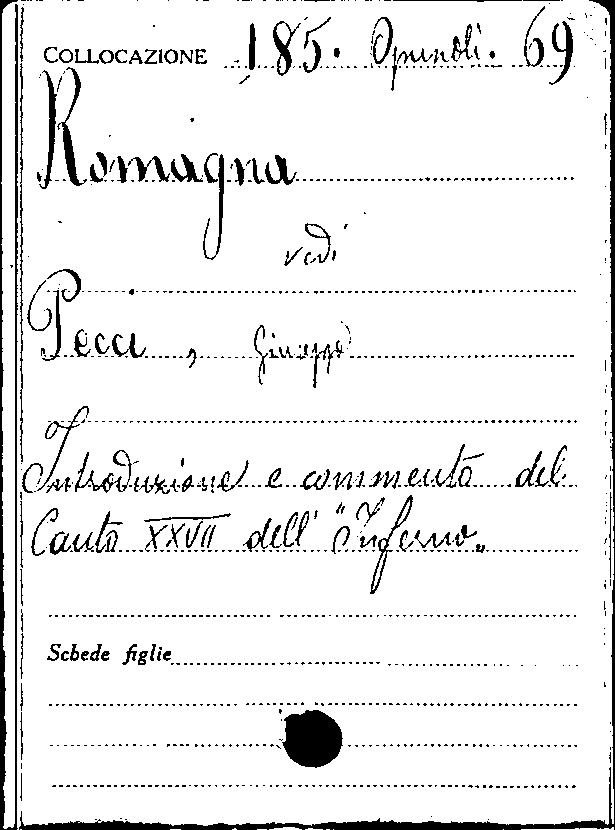 COLLOCAZIONE 185. Opuscoli. 69
Romagna
vedi
Pecci, Giuseppe
Introduzione e commento del
Canto XXVII dell' "Inferno"
Schede figlie